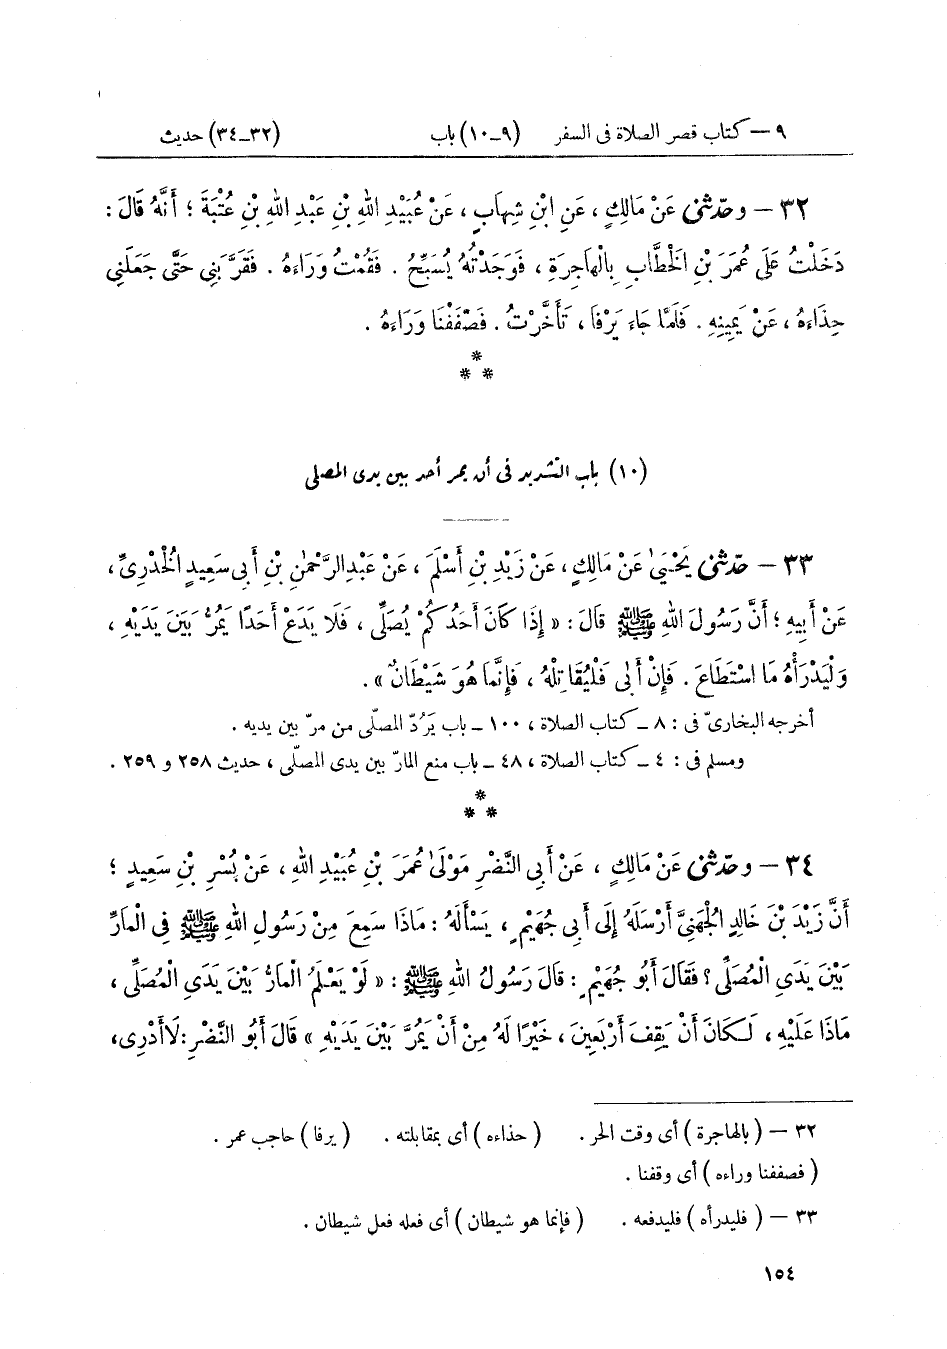 ٩ – كتاب قصر الصلاة فى السفر (٩-١٠) باب (٣٢-٣٤) حديث
٣٢ – وحدّثنى عَنْ مَالِكٍ ، عَنِ ابْنِ شِهَابٍ ، عَنْ عُبَيْدِ اللهِ بْنِ عَبْدِ اللهِ بْنِ عُتْبَةَ ؛ أَنَّهُ قَالَ :
دَخَلْتُ عَلَى عُمَرَ بْنِ الْخَطَّابِ بِالْهَاجِرَةِ ، فَوَجَدْتُهُ يُسَبِّحُ . فَقُمْتُ وَرَاءَهُ . فَقَرَّبَنِى حَتَّى جَعَلَنِى
حِذَاءَهُ ، عَنْ يَمِينِهِ . فَلَمَّا جَاءَ يَرْفَا ، تَأَخَّرْتُ . فَصَفَفْنَا وَرَاءَهُ .
*
* *
(١٠) باب التشديد فى أن يمر أحد بين يدى المصلى
٣٣ – حدّثنى يَحْيَىٰ عَنْ مَالِكٍ ، عَنْ زَيْدِ بْنِ أَسْلَمَ ، عَنْ عَبْدِ الرَّحْمٰنِ بْنِ أَبِى سَعِيدٍ الْخُدْرِىِّ ،
عَنْ أَبِيهِ ؛ أَنَّ رَسُولَ اللهِ ﷺ قَالَ : « إِذَا كَانَ أَحَدُكُمْ يُصَلِّى ، فَلَا يَدَعْ أَحَدًا يَمُرُّ بَيْنَ يَدَيْهِ ،
وَلْيَدْرَأْهُ مَا اسْتَطَاعَ . فَإِنْ أَبَى فَلْيُقَاتِلْهُ ، فَإِنَّمَا هُوَ شَيْطَانٌ » .
أخرجه البخارىّ فى : ٨ – كتاب الصلاة ، ١٠٠ – باب يَرُدّ المصلّى من مرّ بين يديه .
ومسلم فى : ٤ – كتاب الصلاة ، ٤٨ – باب منع المارّ بين يدى المصلّى ، حديث ٢٥٨ و ٢٥٩ .
*
* *
٣٤ – وحدّثنى عَنْ مَالِكٍ ، عَنْ أَبِى النَّضْرِ مَوْلَىٰ عُمَرَ بْنِ عُبَيْدِ اللهِ ، عَنْ بُسْرِ بْنِ سَعِيدٍ ؛
أَنَّ زَيْدَ بْنَ خَالِدٍ الْجُهَنِىَّ أَرْسَلَهُ إِلَى أَبِى جُهَيْمٍ ، يَسْأَلُهُ : مَاذَا سَمِعَ مِنْ رَسُولِ اللهِ ﷺ فِى الْمَارِّ
بَيْنَ يَدَىِ الْمُصَلِّى ؟ فَقَالَ أَبُو جُهَيْمٍ : قَالَ رَسُولُ اللهِ ﷺ : « لَوْ يَعْلَمُ الْمَارُّ بَيْنَ يَدَىِ الْمُصَلِّى ،
مَاذَا عَلَيْهِ ، لَكَانَ أَنْ يَقِفَ أَرْبَعِينَ ، خَيْرًا لَهُ مِنْ أَنْ يَمُرَّ بَيْنَ يَدَيْهِ » قَالَ أَبُو النَّضْرِ : لَا أَدْرِى ،
٣٢ – ( بالهاجرة ) أى وقت الحر . ( حذاءه ) أى بمقابلته . ( يرفا ) حاجب عمر .
( فصففنا وراءه ) أى وقفنا .
٣٣ – ( فليدرأه ) فليدفعه . ( فإنما هو شيطان ) أى فعله فعل شيطان .
١٥٤